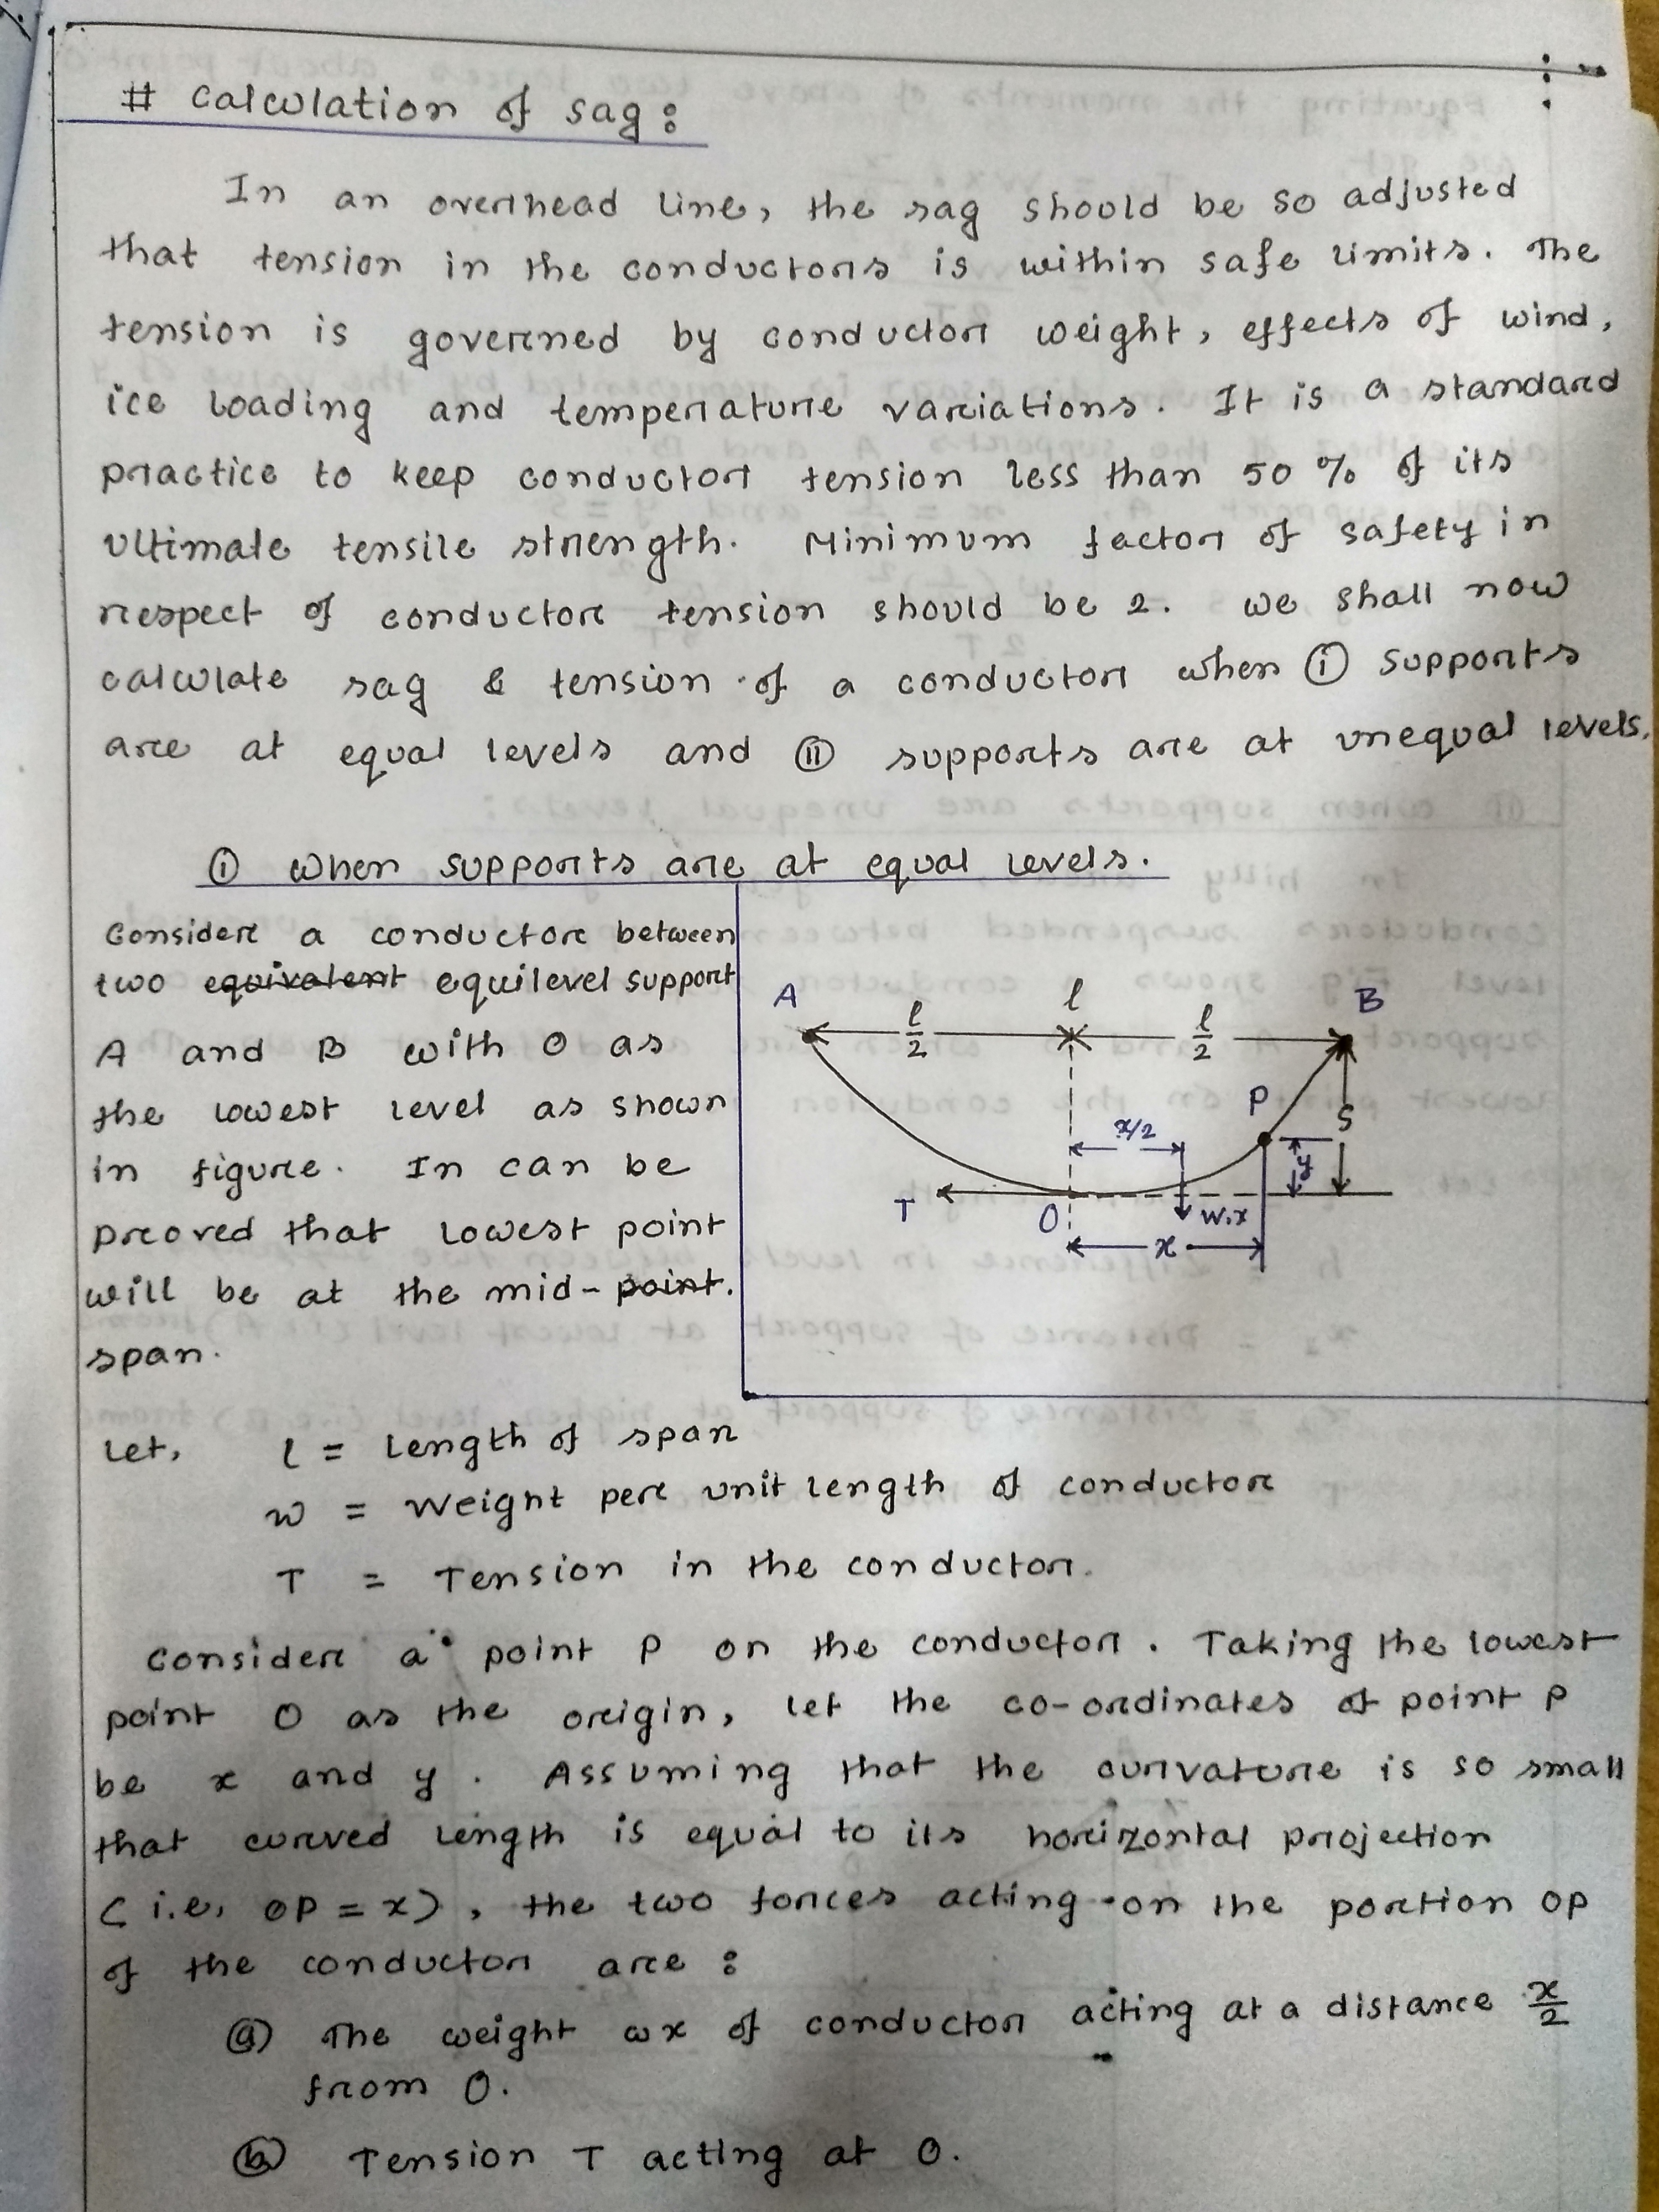 # Calculation of sag:
In an overhead line, the sag should be so adjusted
that tension in the conductors is within safe limits. The
tension is governed by conductor weight, effects of wind,
ice loading and temperature variations. It is a standard
practice to keep conductor tension less than 50 % of its
ultimate tensile strength. Minimum factor of safety in
respect of conductor tension should be 2. we shall now
calculate sag & tension of a conductor when (i) supports
are at equal levels and (ii) supports are at unequal levels.
(i) When supports are at equal levels.
Consider a conductor between
two equivalent equilevel support
A and B with O as
the lowest level as shown
in figure. In can be
proved that lowest point
will be at the mid-point.
span.
A l B
l/2 l/2
P
S
x/2
y
T
O
w.x
x
Let, l = Length of span
w = Weight per unit length of conductor
T = Tension in the conductor.
Consider a point P on the conductor. Taking the lowest
point O as the origin, let the co-ordinates of point P
be x and y. Assuming that the curvature is so small
that curved length is equal to its horizontal projection
(i.e, OP = x), the two forces acting on the portion OP
of the conductor are :
(a) The weight wx of conductor acting at a distance x/2
from O.
(b) Tension T acting at O.